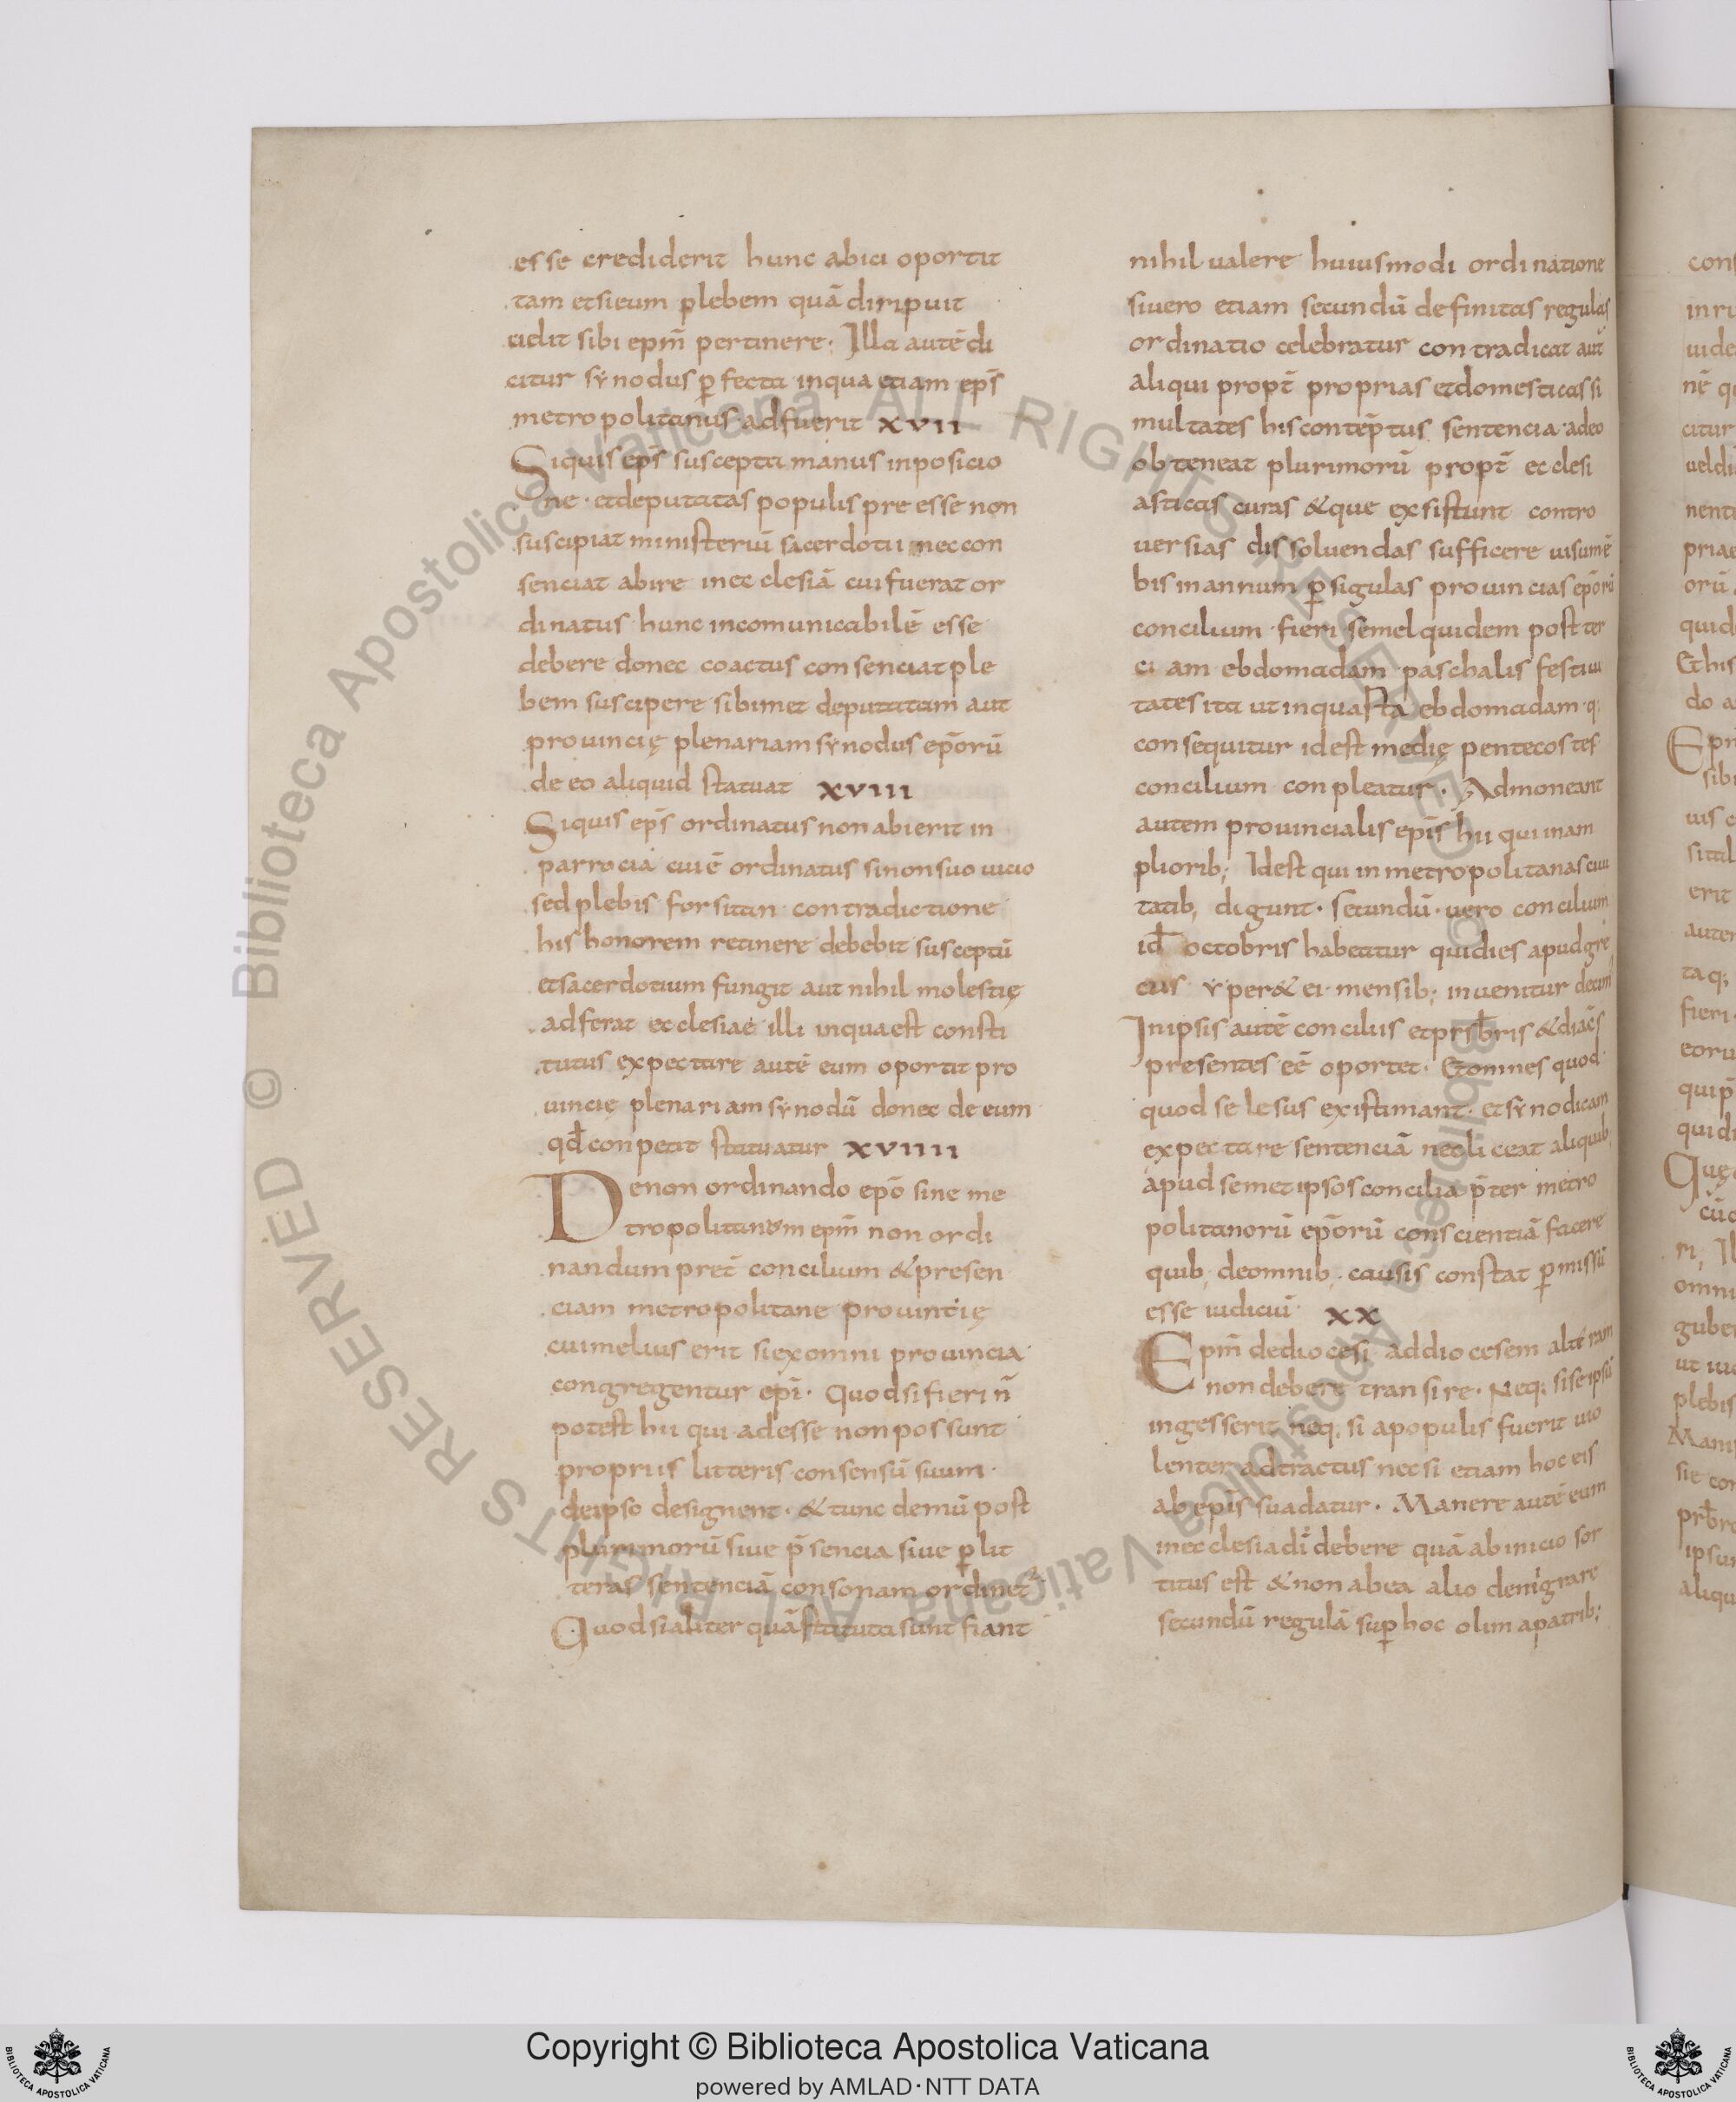 esse crediderit hunc abici oportit
tam etsieum plebem quā diripuit
cidit sibi epm̄ pertinere· Illa autē di
citur synodus ꝑfecta inqua etiam eps̄
metropolitanus adfuerit XVII
Siquis eps̄ suscepta manus inposicio
ne· etdeputatas populis pre esse non
suscipiat ministeriū sacerdotii neccon
senciat abire inecclesiā cuifuerat or
dinatus hunc incomunicabilē esse
debere donec coactus consenciat ple
bem suscipere sibimet deputatam aut
prouincię plenariam synodus epōrū
de eo aliquid statuat XVIII
Siquis eps̄ ordinatus non abierit in
parrocia cui ē ordinatus sinonsuo uicio
sed plebis forsitan contradictione
his honorem retinere debebit susceptū
etsacerdotium fungit aut nihil molestię
adferat ecclesiae illi inquaest consti
tutus expectare autē eum oportit pro
uincię plenariam synodū donec de eum
qđ conpetit statuatur XVIIII
Denon ordinando epō sine me
tropolitanom epm̄ non ordi
nandum pret̄ concilium &presen
ciam metropolitane prouintię
cuimelius erit siexomni prouincia
congregentur epī· Quodsifieri n̄
potest hii qui adesse nonpossunt
propriis litteris consensū suum·
deipso designent· &tunc demū post
plurimorū siue p̄sencia siue ꝑ lit
teras sentenciā consonam ordinet
Quodsialiter quā statuta sunt fiant
nihil ualere huiusmodi ordinatione
siuero etiam secundū definitas regulas
ordinatio celebratur contradicat aut̄
aliqui propt̄ proprias etdomesticas si
multates his contēptus sentencia·adeo
obteneat plurimorū propt̄ ecclesi
asticas curas &que exsistunt contro
uersias dissoluendas sufficere uisumē
bis inannum ꝑ sigulas prouincias epōrū
concilium fieri semel quidem post ter
ciam ebdomadam paschalis festiui
tates ita ut inquasta ebdomadam·q;
consequitur idest medię pentecostes
concilium conpleatur· Admoneant
autem prouincialis epīs hii qui inam
pliorib; Idest qui in metropolitanas ciui
tatib; digunt· secundū·uero concilium
id̄ octobris habeatur quidies apudgre
cus yper&ei mensib; inuenitur decimi
Inipsis autē conciliis etprsb̄ris &diac̄s
presentes eē oportet· Etomnes quod
quod se lesus existimant· etsynodicam
expectare sentenciā necliceat aliquib;
apud semetipsos concilia p̄ter metro
politanorū epōrū conscientiā facere
quib; deomnib; causis constat ꝑmissū
esse iudiciū XX
Epm̄ dediocesi addiocesem alteram
nondebere transire· Neq; siseipsū
ingesserit neq; si apopulis fuerit uio
lenter adtractus necsi etiam hoc eis
ab epīs suadatur· Manere autē eum
inecclesia dī debere quā abinicio sor
titus est &non abea alio denigrare
secundū regulā suꝑ hoc olim apatrib;